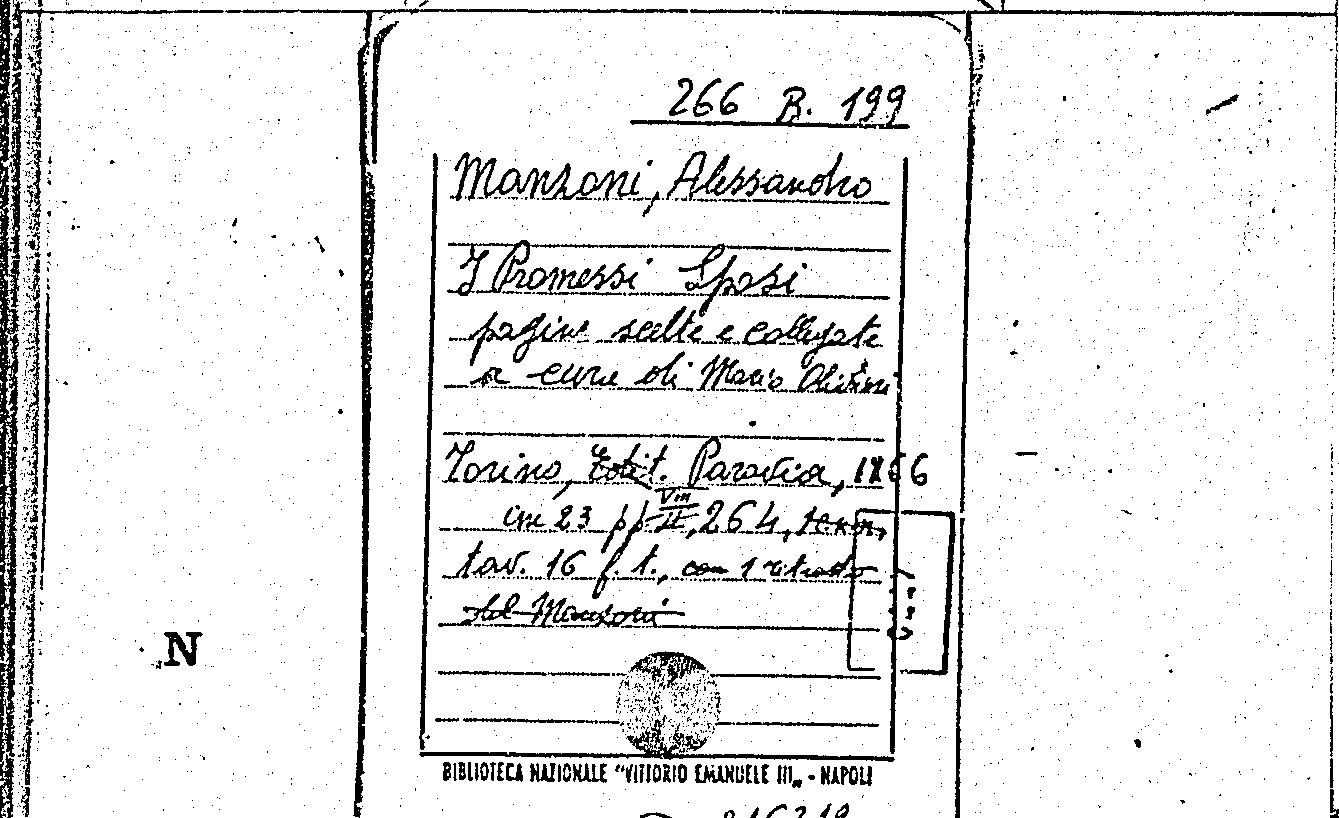 266 B. 199
Manzoni, Alessandro
I Promessi Sposi
pagine scelte e collegate
a cura di Mario
Torino, Edit. Paravia,
cm 23 pp VIII, 264,
tav. 16 f. t., con 1 ritratto
del Manzoni
N
BIBLIOTECA NAZIONALE "VITTORIO EMANUELE III„ - NAPOLI